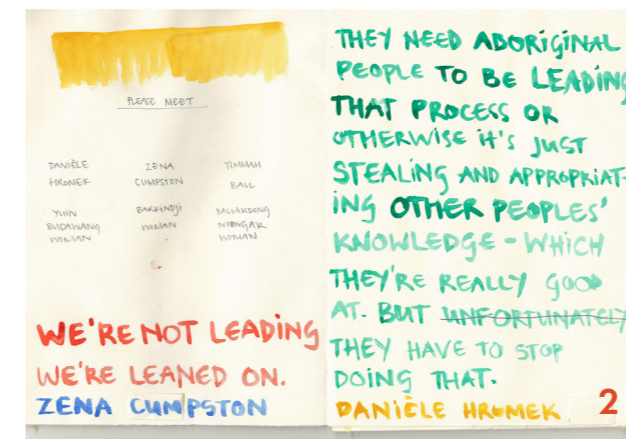 PLEASE MEET
DANIÈLE
HROMEK
YUIN
BUDAWANG
WOMAN
ZENA
CUMPSTON
BARKINDJI
WOMAN
TIMMAH
BALL
BALLARDONG
NOONGAR
WOMAN
WE'RE NOT LEADING
WE'RE LEANED ON.
ZENA CUMPSTON
THEY NEED ABORiGiNAL
PEOPLE TO BE LEADING
THAT PROCESS OR
OTHERWISE iT'S JUST
STEALiNG AND APPROPRiAT-
iNG OTHER PEOPLES'
KNOWLEDGE - WHiCH
THEY'RE REALLY GOOD
AT. BUT UNFORTUNATELY
THEY HAVE TO STOP
DOiNG THAT.
DANiÈLE HROMEK
2